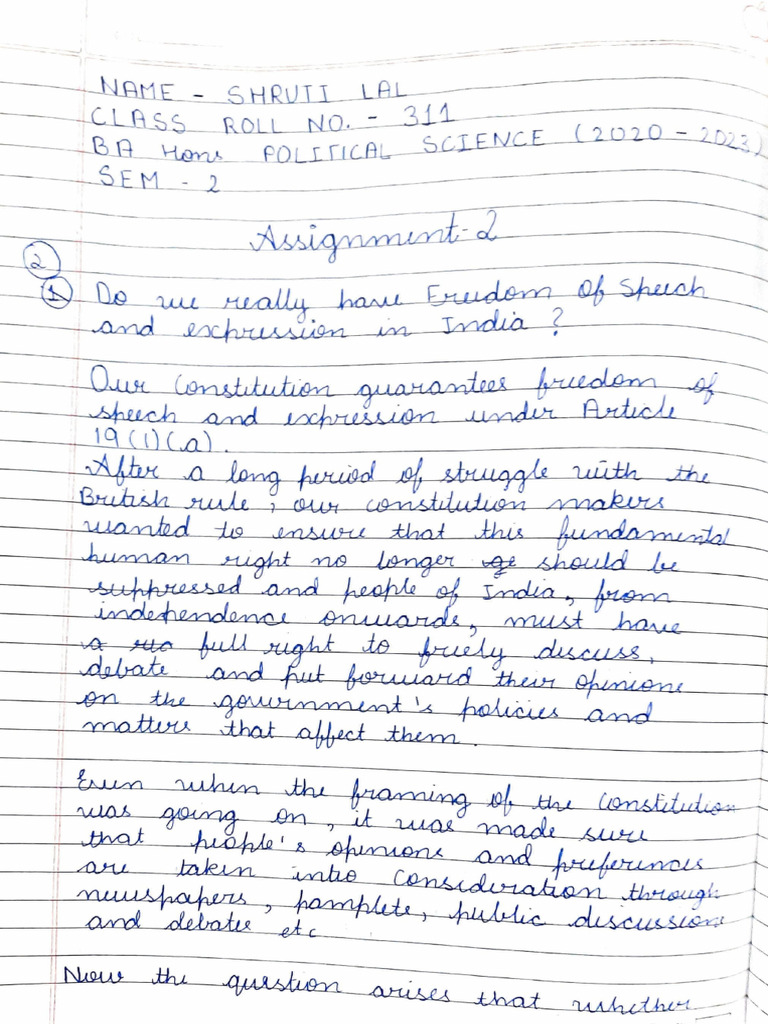 NAME - SHRUTI LAL
CLASS ROLL NO. - 311
BA Hons POLITICAL SCIENCE (2020 - 2023)
SEM - 2
Assignment-2
2
1 Do we really have Freedom Of Speech
and expression in India ?
Our Constitution guarantees freedom of
speech and expression under Article
19(1)(a).
After a long period of struggle with the
British rule, our constitution makers
wanted to ensure that this fundamental
human right no longer should be
suppressed and people of India, from
independence onwards, must have
a full right to freely discuss,
debate and put forward their opinions
on the government's policies and
matters that affect them.
Even when the framing of the Constitution
was going on, it was made sure
that people's opinions and preferences
are taken into consideration through
newspapers, pamplets, public discussions
and debates etc
Now the question arises that whether